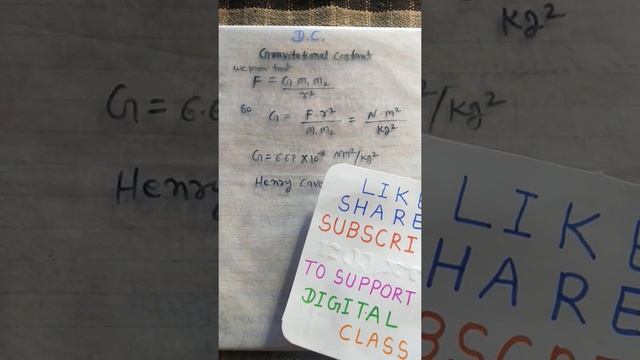 D.C.
Gravitational Costant
we know that
F = G m₁ m₂ / r²
So G = F·r² / m₁ m₂ = N·m² / Kg²
G = 6.67 × 10⁻¹¹ Nm²/Kg²
Henry Cave
LIKE
SHARE
SUBSCRI
TO SUPPORT
DIGITAL
CLASS
Kg²
G = 6.6
/Kg²
Henry
LIKE
HARE
BSCRI